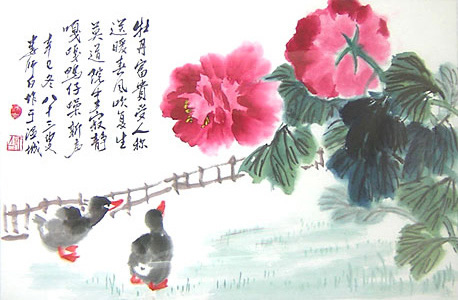 牡丹富貴受人称
送暖春风吹复生
莫道院生寂静
嘎嘎鸭仔噪新声
辛巳冬八十三叟
娄师白作于城